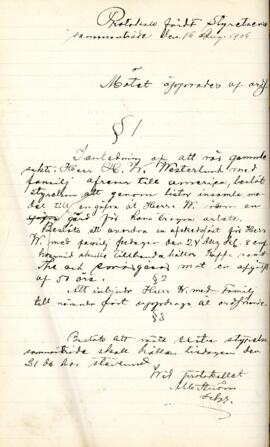 Protokoll fördt Styrelsens
sammanträde den 16 Aug. 1906
Mötet öppnades af ordf.
§ 1
I anledning af att vår gamle
sekr. Herr H. W. Westerlund med
familj afreser till Amerika, beslöt
styrelsen att genom listor insamla me-
del till en gåfva åt Herr. W. som en
gärd för hans trogna arbete.
Beslöts att anordna en afskedsfest för Herr
W. med familj fredagen den 24 Aug. kl. 8 e.m.
hvarvid skulle tillhandahållas Kaffe samt
The och smörgåsar mot en afgift
af 50 öre. § 2
Att inbjuda Herr W. med familj
till nämnda fest uppdrogs åt ordförande.
§ 3
Beslöts att nästa styrelse
sammanträde skall hållas tisdagen den
21 ds hos
Vid protokollet